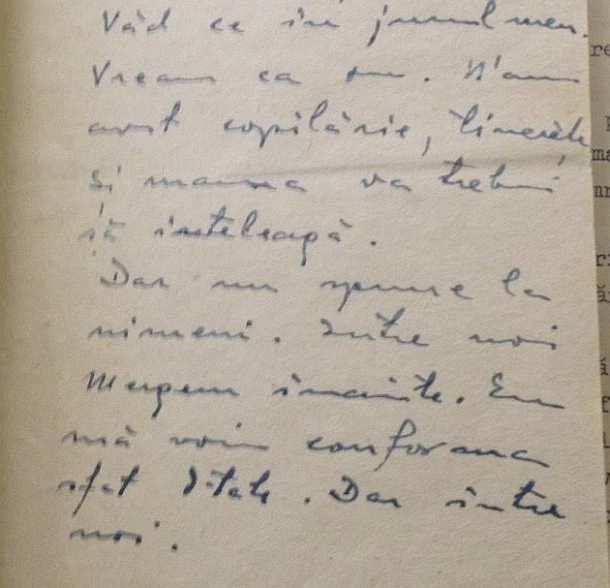 Văd ce în jurul meu.
Vream ca om. N'am
avut copilărie, tinerețe
și mama va trebui
să înțeleagă.
Dar nu spune la
nimeni. Intre noi
Mergem înainte. Eu
mă voiu conforma
sfat. Dar între
noi.